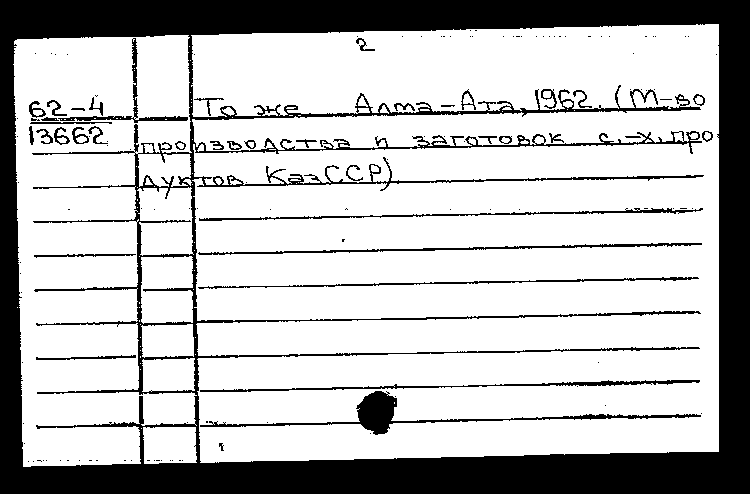 2
62-4 То же Алма-Ата, 1962. (М-во
13662 производства и заготовок с.-х. про-
дуктов КазССР)